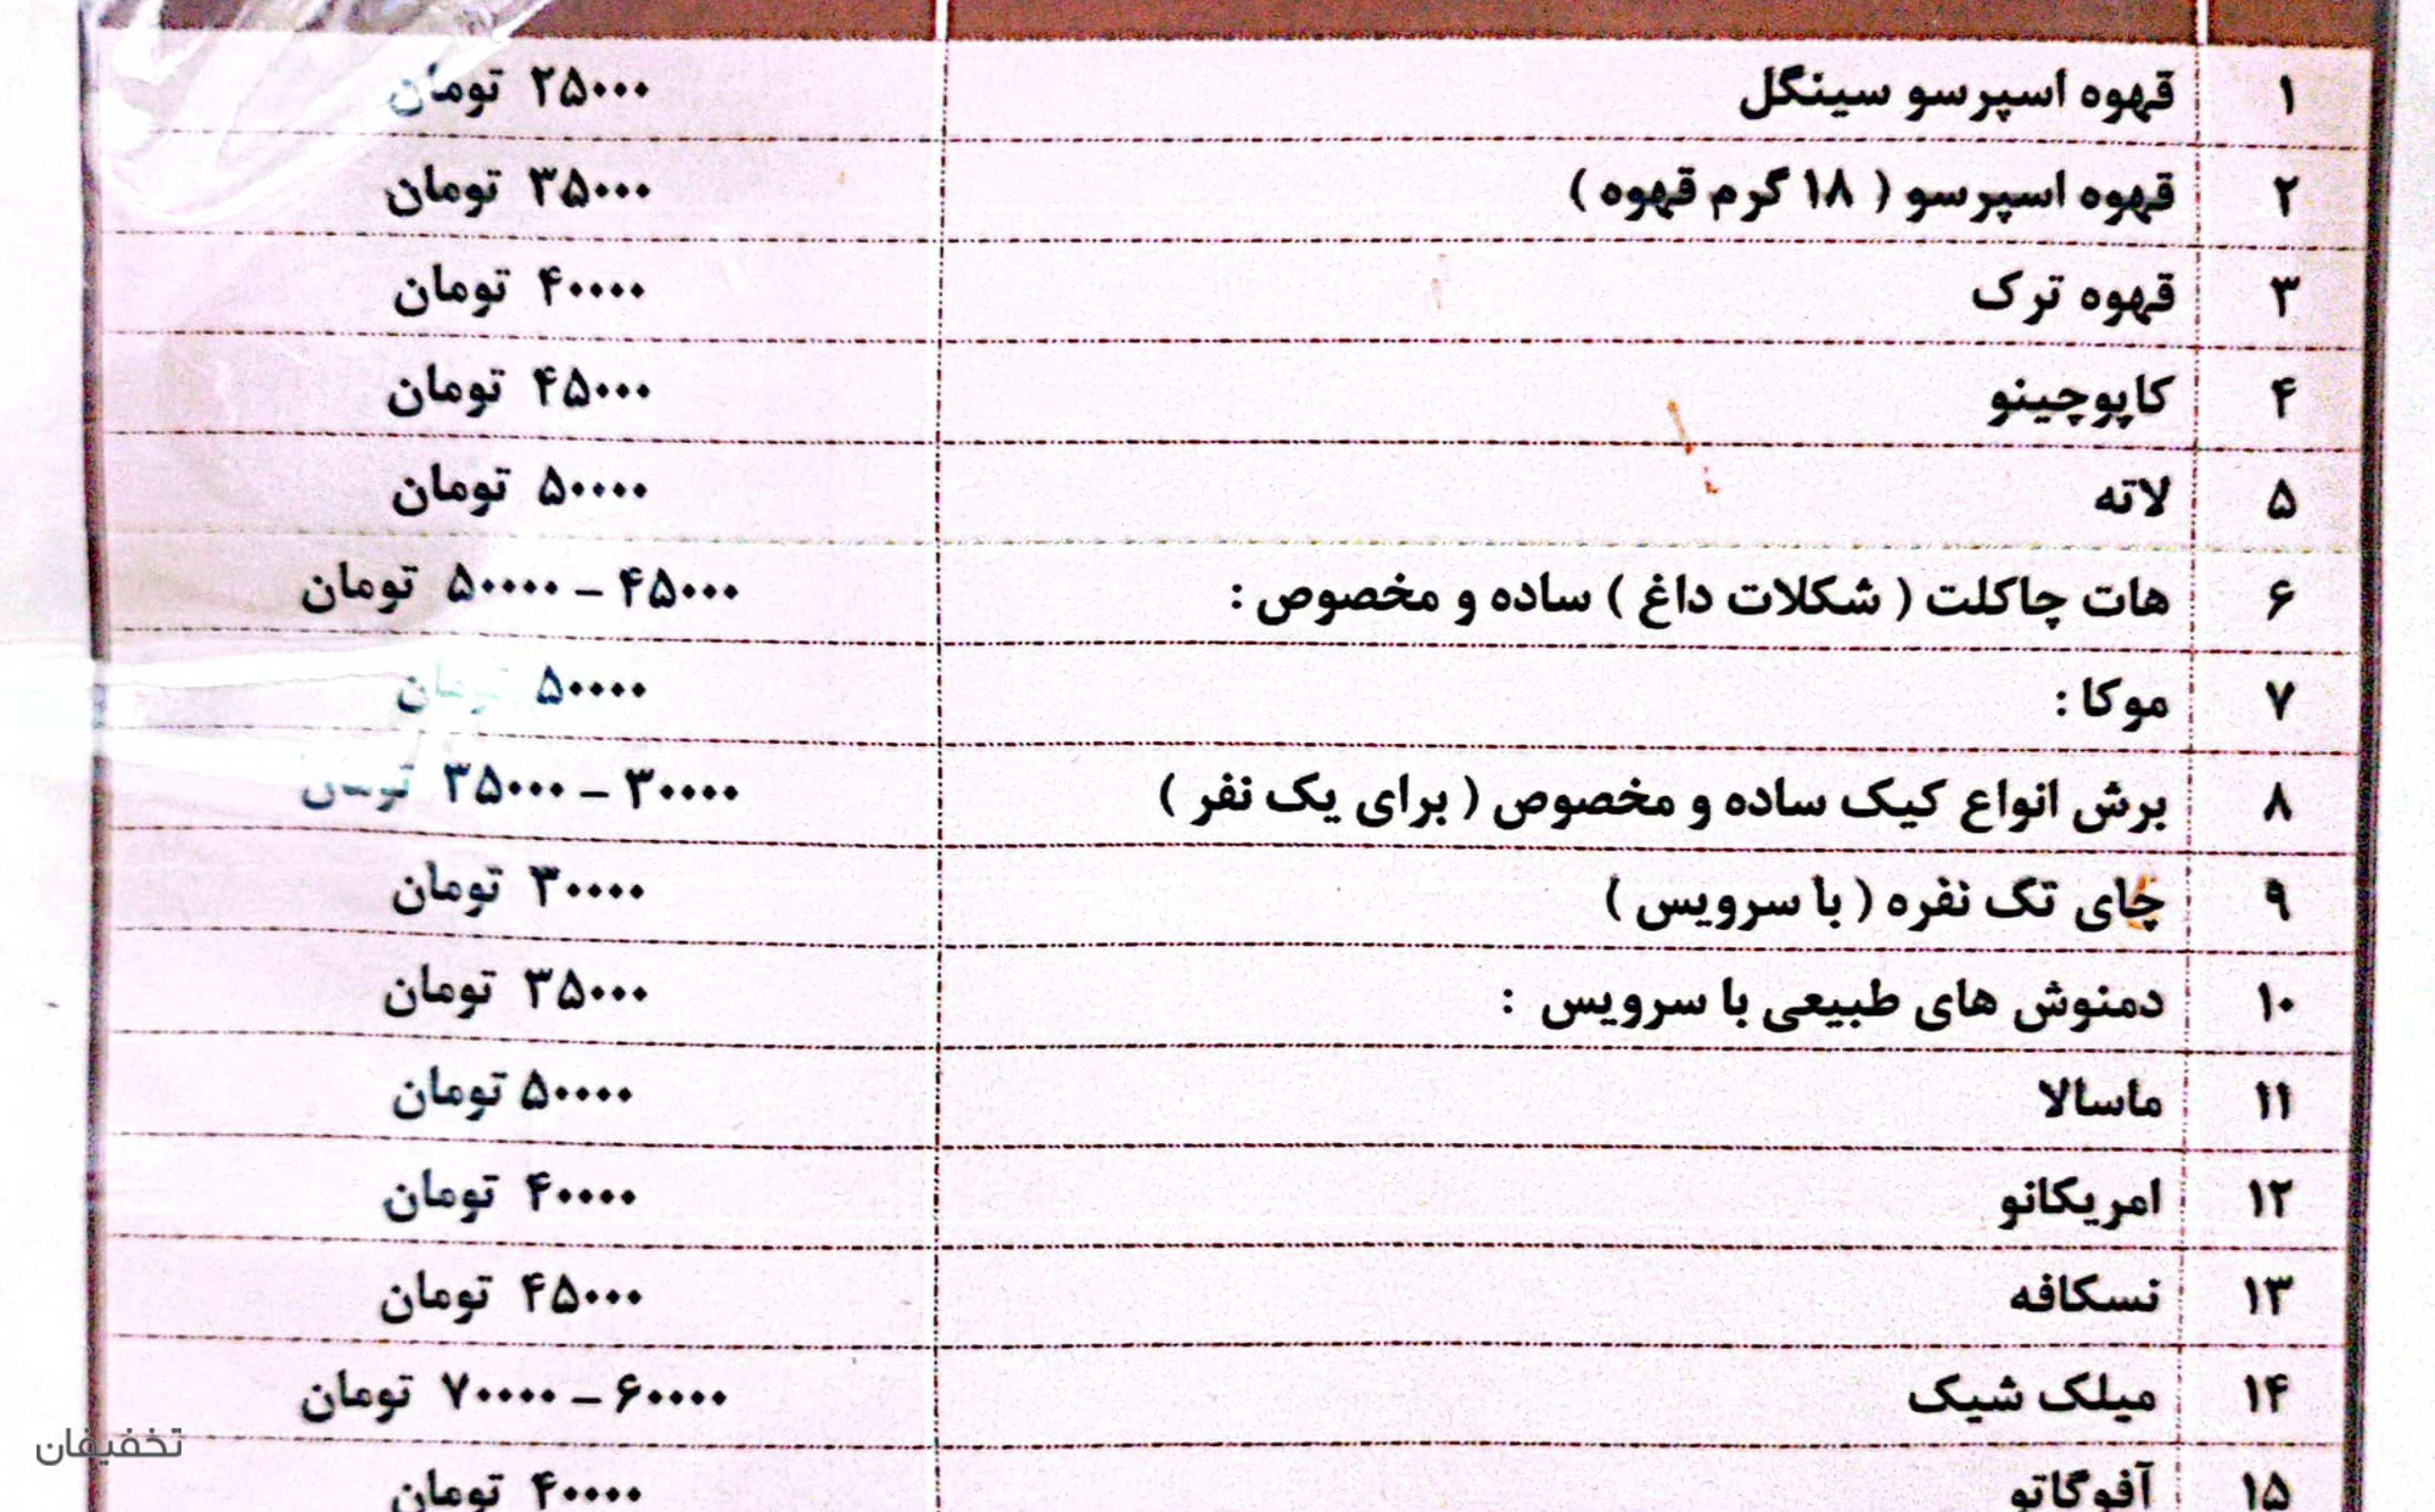 ۱ قهوه اسپرسو سینگل ۲۵۰۰۰ تومان
۲ قهوه اسپرسو ( ۱۸ گرم قهوه ) ۳۵۰۰۰ تومان
۳ قهوه ترک ۴۰۰۰۰ تومان
۴ کاپوچینو ۴۵۰۰۰ تومان
۵ لاته ۵۰۰۰۰ تومان
۶ هات چاکلت ( شکلات داغ ) ساده و مخصوص : ۴۵۰۰۰ – ۵۰۰۰۰ تومان
۷ موکا : ۵۰۰۰۰ تومان
۸ برش انواع کیک ساده و مخصوص ( برای یک نفر ) ۳۰۰۰۰ – ۳۵۰۰۰ تومان
۹ چای تک نفره ( با سرویس ) ۳۰۰۰۰ تومان
۱۰ دمنوش های طبیعی با سرویس : ۳۵۰۰۰ تومان
۱۱ ماسالا ۵۰۰۰۰ تومان
۱۲ امریکانو ۴۰۰۰۰ تومان
۱۳ نسکافه ۴۵۰۰۰ تومان
۱۴ میلک شیک ۶۰۰۰۰ – ۷۰۰۰۰ تومان
۱۵ آفوگاتو ۴۰۰۰۰ تومان
تخفیفان